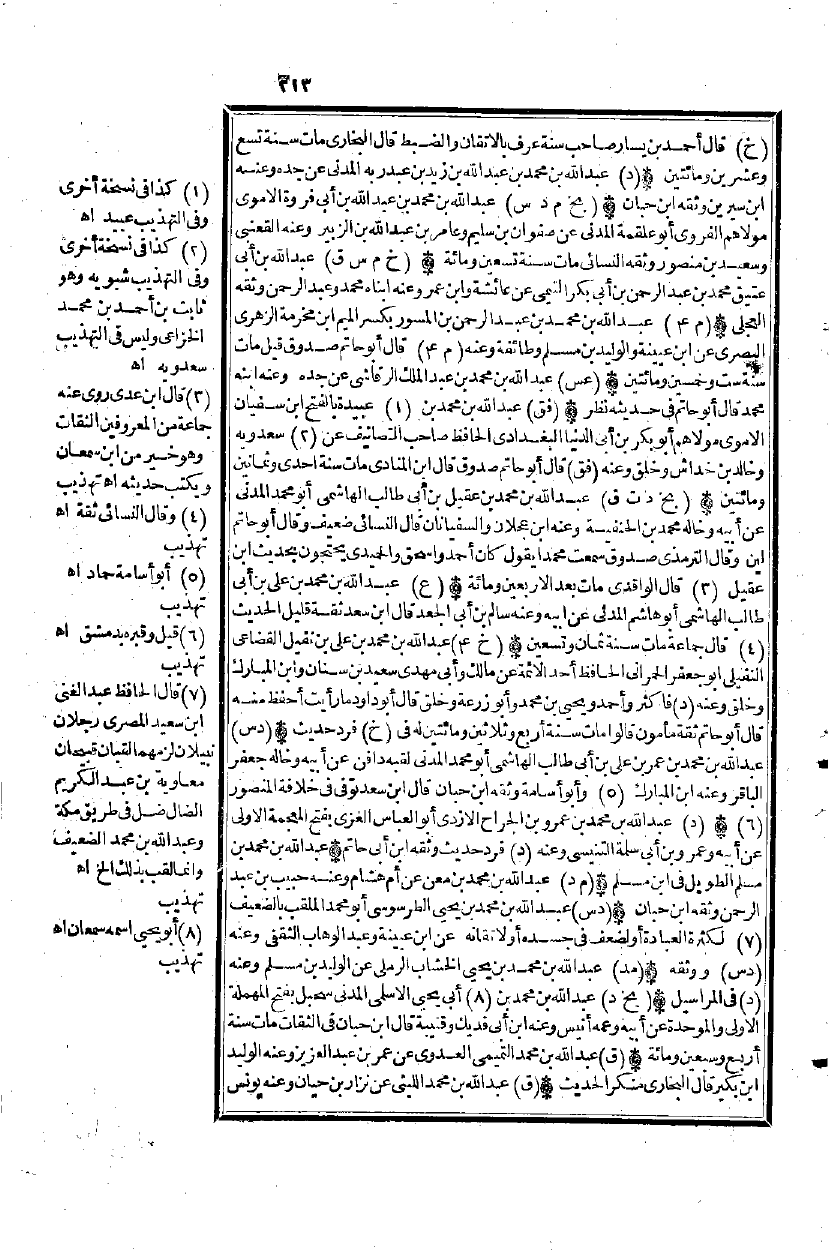 ٢١٣
(خ) قال أحمد بن يسار صاحب سنة عرف بالاتقان والضبط قال البخارى مات سنة تسع
وعشرين ومائتين (د) عبد الله بن محمد بن عبد الله بن زيد بن عبد ربه المدنى عن جده وعنه
ابن سيرين وثقه ابن حبان (بخ م د س) عبد الله بن محمد بن عبد الله بن أبى فروة الاموى
مولاهم الفروى أبو علقمة المدنى عن صفوان بن سليم وعامر بن عبد الله بن الزبير وعنه القعنبى
وسعيد بن منصور وثقه النسائى مات سنة تسعين ومائة (خ م س ق) عبد الله بن أبى
عتيق محمد بن عبد الرحمن بن أبى بكر التيمى عن عائشة وابن عمر وعنه ابناه محمد وعبد الرحمن وثقه
العجلى (م ٤) عبد الله بن محمد بن عبد الرحمن بن المسور بكسر الميم ابن مخرمة الزهرى
البصرى عن ابن عيينة والوليد بن مسلم وطائفة وعنه (م ٤) قال أبو حاتم صدوق قيل مات
سنة ست وخمسين ومائتين (عس) عبد الله بن محمد بن عبد الملك الرقاشى عن جده وعنه ابنه
محمد قال أبو حاتم فى حديثه نظر (فق) عبد الله بن محمد بن (١) عبيدة بالفتح ابن سفيان
الاموى مولاهم أبو بكر بن أبى الدنيا البغدادى الحافظ صاحب التصانيف عن (٢) سعدويه
وخالد بن خداش وخلق وعنه (فق) قال أبو حاتم صدوق قال ابن المنادى مات سنة احدى وثمانين
ومائتين (بخ د ت ق) عبد الله بن محمد بن عقيل بن أبى طالب الهاشمى أبو محمد المدنى
عن أبيه وخاله محمد بن الحنفية وعنه ابن عجلان والسفيانان قال النسائى ضعيف وقال أبو حاتم
لين وقال الترمذى صدوق سمعت محمدا يقول كان أحمد واسحق والحميدى يحتجون بحديث ابن
عقيل (٣) قال الواقدى مات بعد الاربعين ومائة (ع) عبد الله بن محمد بن على بن أبى
طالب الهاشمى أبو هاشم المدنى عن ابيه وعنه سالم بن أبى الجعد قال ابن سعد ثقة قليل الحديث
(٤) قال جماعة مات سنة ثمان وتسعين (خ ٤) عبد الله بن محمد بن على بن نفيل القضاعى
النفيلى ابو جعفر الحرانى الحافظ أحد الائمة عن مالك وأبى مهدى سعيد بن سنان وابن المبارك
وخلق وعنه (د) فاكثر وأحمد ويحيى بن محمد وأبو زرعة وخلق قال أبو داود ما رأيت أحفظ منه
قال أبو حاتم ثقة مأمون قالوا مات سنة أربع وثلاثين ومائتين له فى (خ) فرد حديث (د س)
عبد الله بن محمد بن عمر بن على بن أبى طالب الهاشمى أبو محمد المدنى لقبه دافن عن أبيه وخاله جعفر
الباقر وعنه ابن المبارك (٥) وأبو أسامة وثقه ابن حبان قال ابن سعد توفى فى خلافة المنصور
(٦) (د) عبد الله بن محمد بن عمرو بن الجراح الازدى أبو العباس الغزى بفتح المعجمة الاولى
عن أبيه وعمرو بن أبى سلمة التنيسى وعنه (د) فرد حديث وثقه ابن أبى حاتم عبد الله بن محمد بن
مسلم الطويل فى ابن مسلم (م د) عبد الله بن محمد بن معن عن أم هشام وعنه حبيب بن عبد
الرحمن وثقه ابن حبان (د س) عبد الله بن محمد بن يحيى الطرسوسى أبو محمد الملقب بالضعيف
(٧) لكثرة العبادة أو لضعف فى جسده أو لاتقانه عن ابن عيينة وعبد الوهاب الثقفى وعنه
(د س) ووثقه (مد) عبد الله بن محمد بن يحيى الخشاب الرملى عن الوليد بن مسلم وعنه
(د) فى المراسيل (بخ د) عبد الله بن محمد بن (٨) أبى يحيى الاسلمى المدنى سحبل بفتح المهملة
الاولى والموحدة عن أبيه وعمه أنيس وعنه ابن أبى فديك وقتيبة قال ابن حبان فى الثقات مات سنة
أربع وسبعين ومائة (ق) عبد الله بن محمد التميمى العدوى عن عمر بن عبد العزيز وعنه الوليد
ابن بكير قال البخارى منكر الحديث (ق) عبد الله بن محمد الليثى عن نزار بن حيان وعنه يونس
(١) كذا فى نسخة أخرى
وفى التهذيب عبيد اه
(٢) كذا فى نسخة أخرى
وفى التهذيب شبويه وهو
ثابت بن أحمد بن محمد
الخزاعى وليس فى التهذيب
سعدويه اه
(٣) قال ابن عدى روى عنه
جماعة من المعروفين الثقات
وهو خير من ابن سمعان
ويكتب حديثه اه تهذيب
(٤) وقال النسائى ثقة اه
تهذيب
(٥) أبو أسامة حماد اه
تهذيب
(٦) قيل وقبره بدمشق اه
تهذيب
(٧) قال الحافظ عبد الغنى
ابن سعيد المصرى رجلان
نبيلان لزمهما لقبان قبيحان
معاوية بن عبد الكريم
الضال ضل فى طريق مكة
وعبد الله بن محمد الضعيف
وانما لقب بذلك الخ اه
تهذيب
(٨) أبو يحيى اسمه سمعان اه
تهذيب